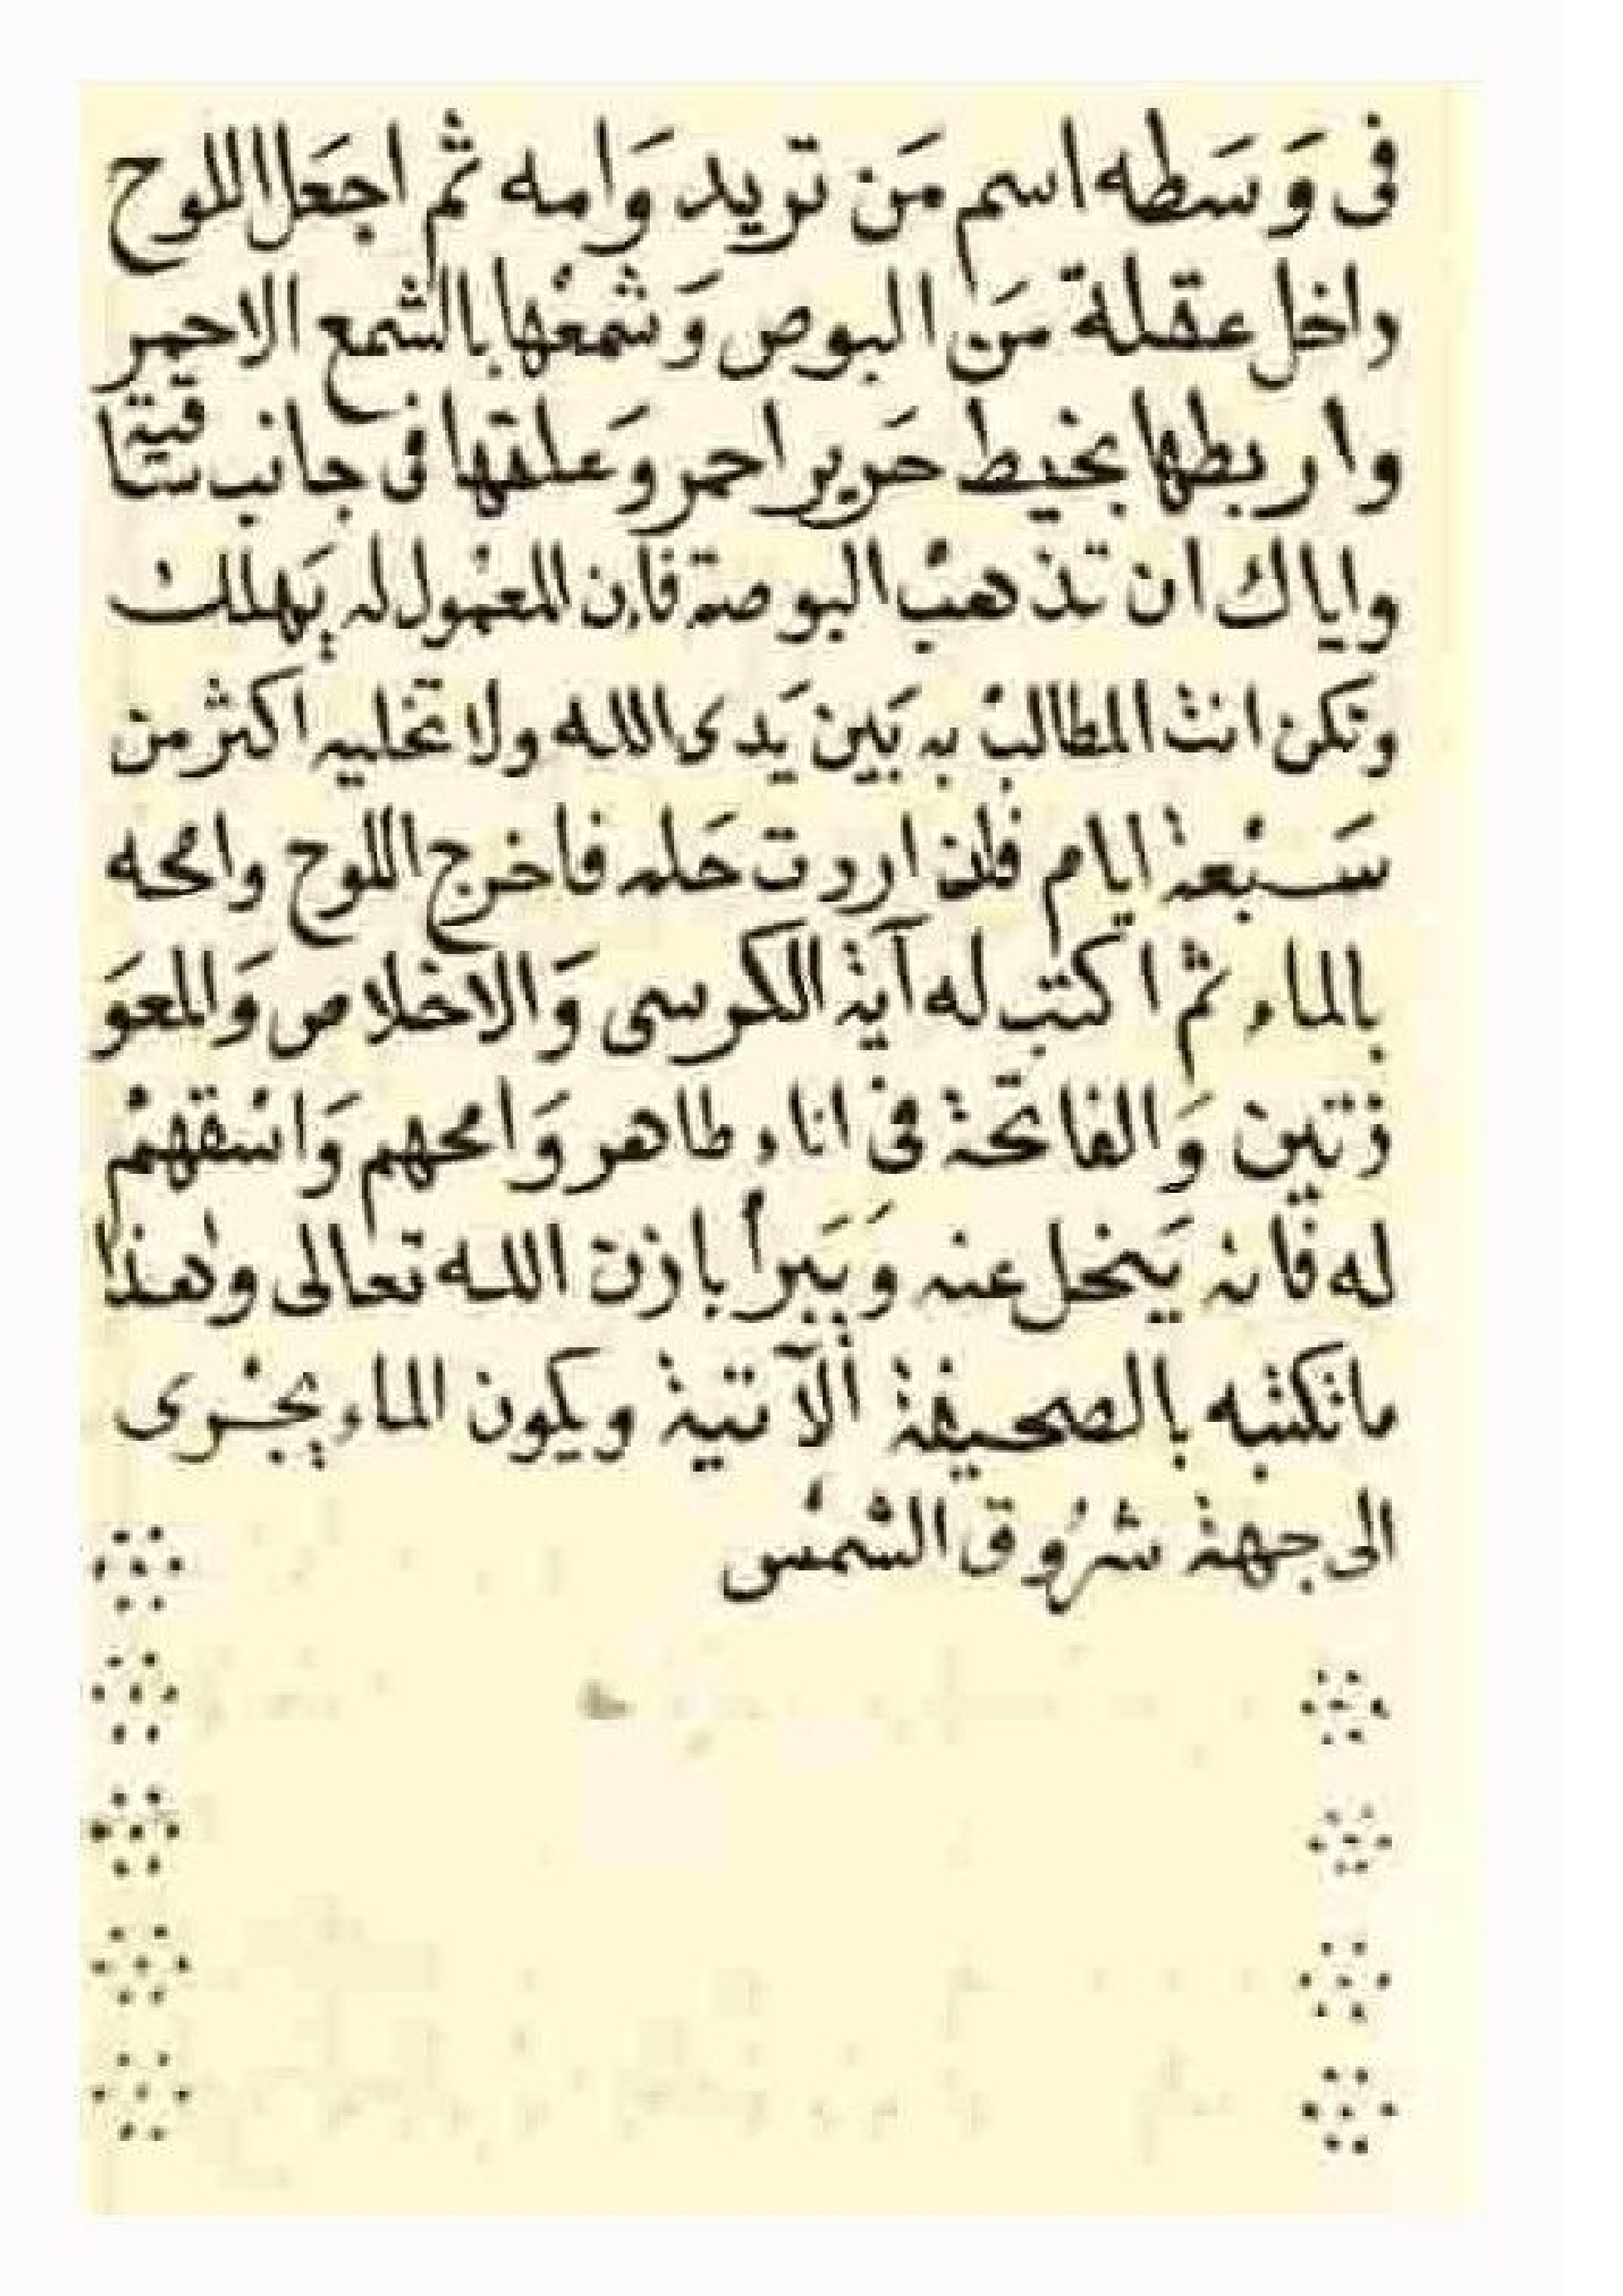 فى وَسَطه اسم مَن تريد وَامه ثم اجعَل اللوح
داخل عقلة مَن البوص وَشمعْها بالشمع الاحمر
واربطها بخيط حَرير احمر وعَلقها فى جانب ساقية
واياك ان تذهبْ البوصة فاٍن المعمْول له يَهلك
وتَكن انتْ المطالبْ به بَين يَدى الله ولا تخليه اكثر من
سَبْعة ايام فان اردت حَله فاخرج اللوح وامحه
بالماء ثم اكتب له آية الكرسى وَالاخلاص وَالمعوَ
ذتين وَالفاتحة فى اناء طاهر وَامحهم وَاسْقهمْ
له فانه يَنحل عنه وَيَبرأ باذن الله تعالى وهذا
ما تكتبه بالصحيفة ألآتية ويكون الماء يجْرى
الى جهة شرُوق الشمْس